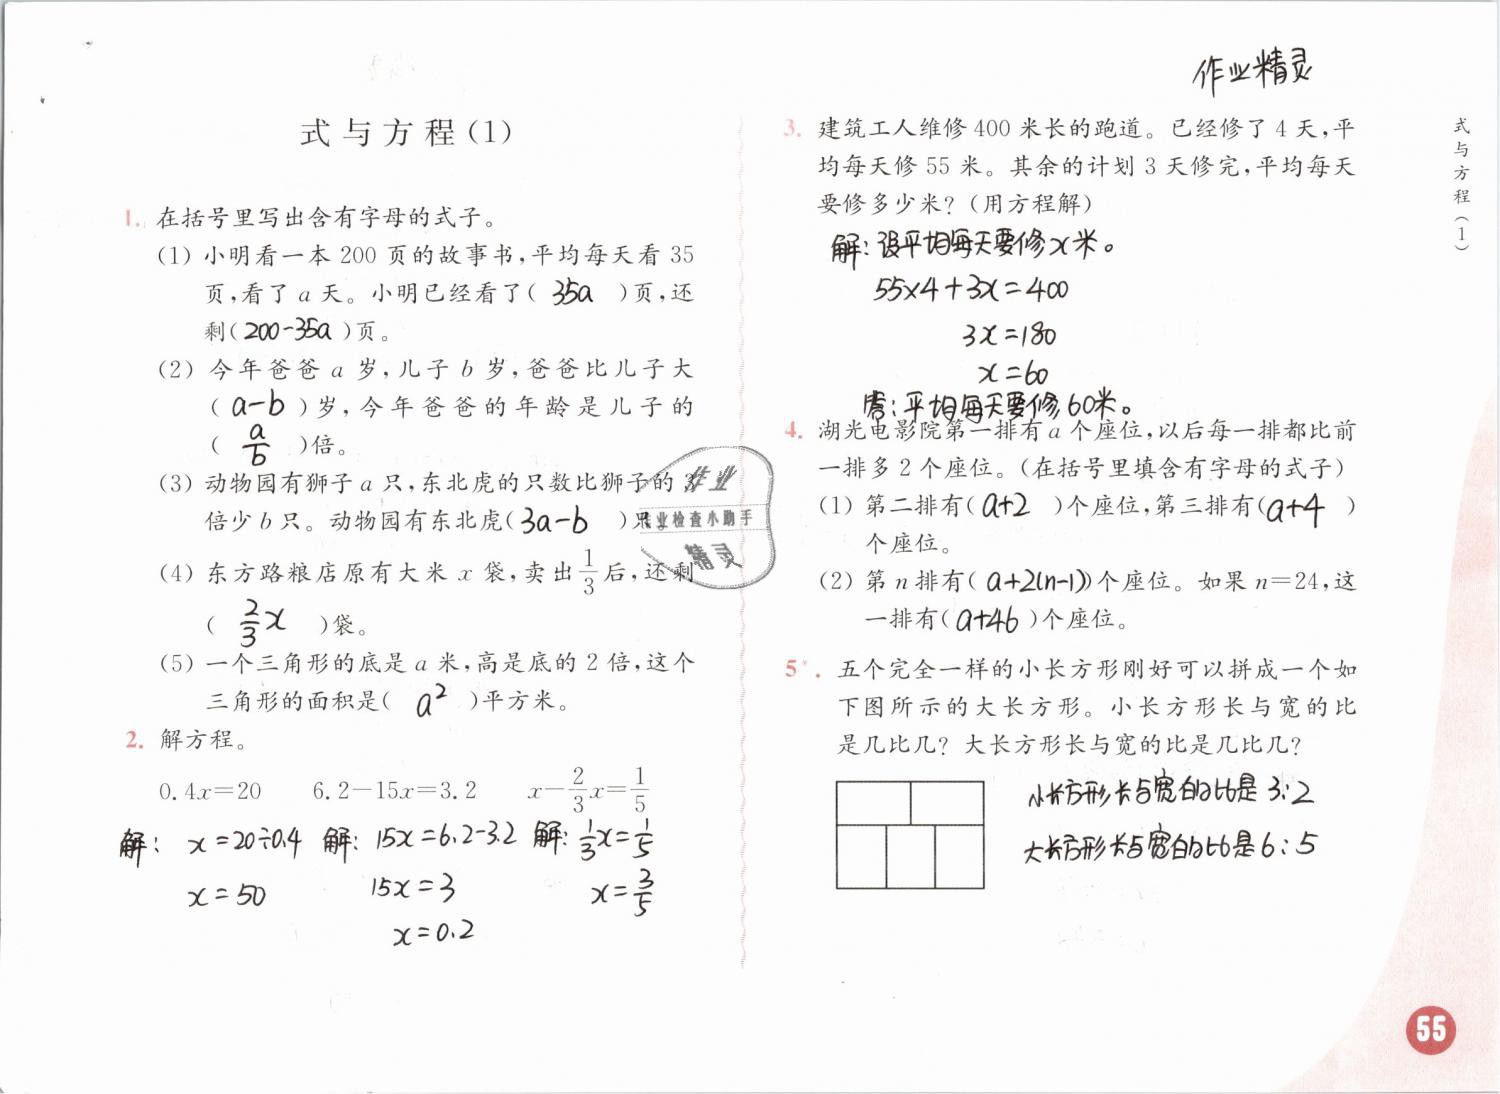 作业精灵
式与方程(1)
1. 在括号里写出含有字母的式子。
(1) 小明看一本 200 页的故事书,平均每天看 35
页,看了 a 天。小明已经看了( 35a )页,还
剩( 200-35a )页。
(2) 今年爸爸 a 岁,儿子 b 岁,爸爸比儿子大
( a-b )岁,今年爸爸的年龄是儿子的
( a/b )倍。
(3) 动物园有狮子 a 只,东北虎的只数比狮子的 3
倍少 b 只。动物园有东北虎( 3a-b )只。
(4) 东方路粮店原有大米 x 袋,卖出 1/3 后,还剩
( 2/3 x )袋。
(5) 一个三角形的底是 a 米,高是底的 2 倍,这个
三角形的面积是( a² )平方米。
2. 解方程。
0.4x=20 6.2-15x=3.2 x-2/3x=1/5
解: x=20÷0.4 解: 15x=6.2-3.2 解: 1/3x=1/5
x=50 15x=3 x=3/5
x=0.2
3. 建筑工人维修 400 米长的跑道。已经修了 4 天,平
均每天修 55 米。其余的计划 3 天修完,平均每天
要修多少米?(用方程解)
解:设平均每天要修x米。
55×4+3x=400
3x=180
x=60
答:平均每天要修60米。
4. 湖光电影院第一排有 a 个座位,以后每一排都比前
一排多 2 个座位。(在括号里填含有字母的式子)
(1) 第二排有( a+2 )个座位,第三排有( a+4 )
个座位。
(2) 第 n 排有( a+2(n-1) )个座位。如果 n=24,这
一排有( a+46 )个座位。
5*. 五个完全一样的小长方形刚好可以拼成一个如
下图所示的大长方形。小长方形长与宽的比
是几比几? 大长方形长与宽的比是几比几?
小长方形长与宽的比是 3:2
大长方形长与宽的比是 6:5
式与方程(1)
55
作业
作业检查小助手
精灵